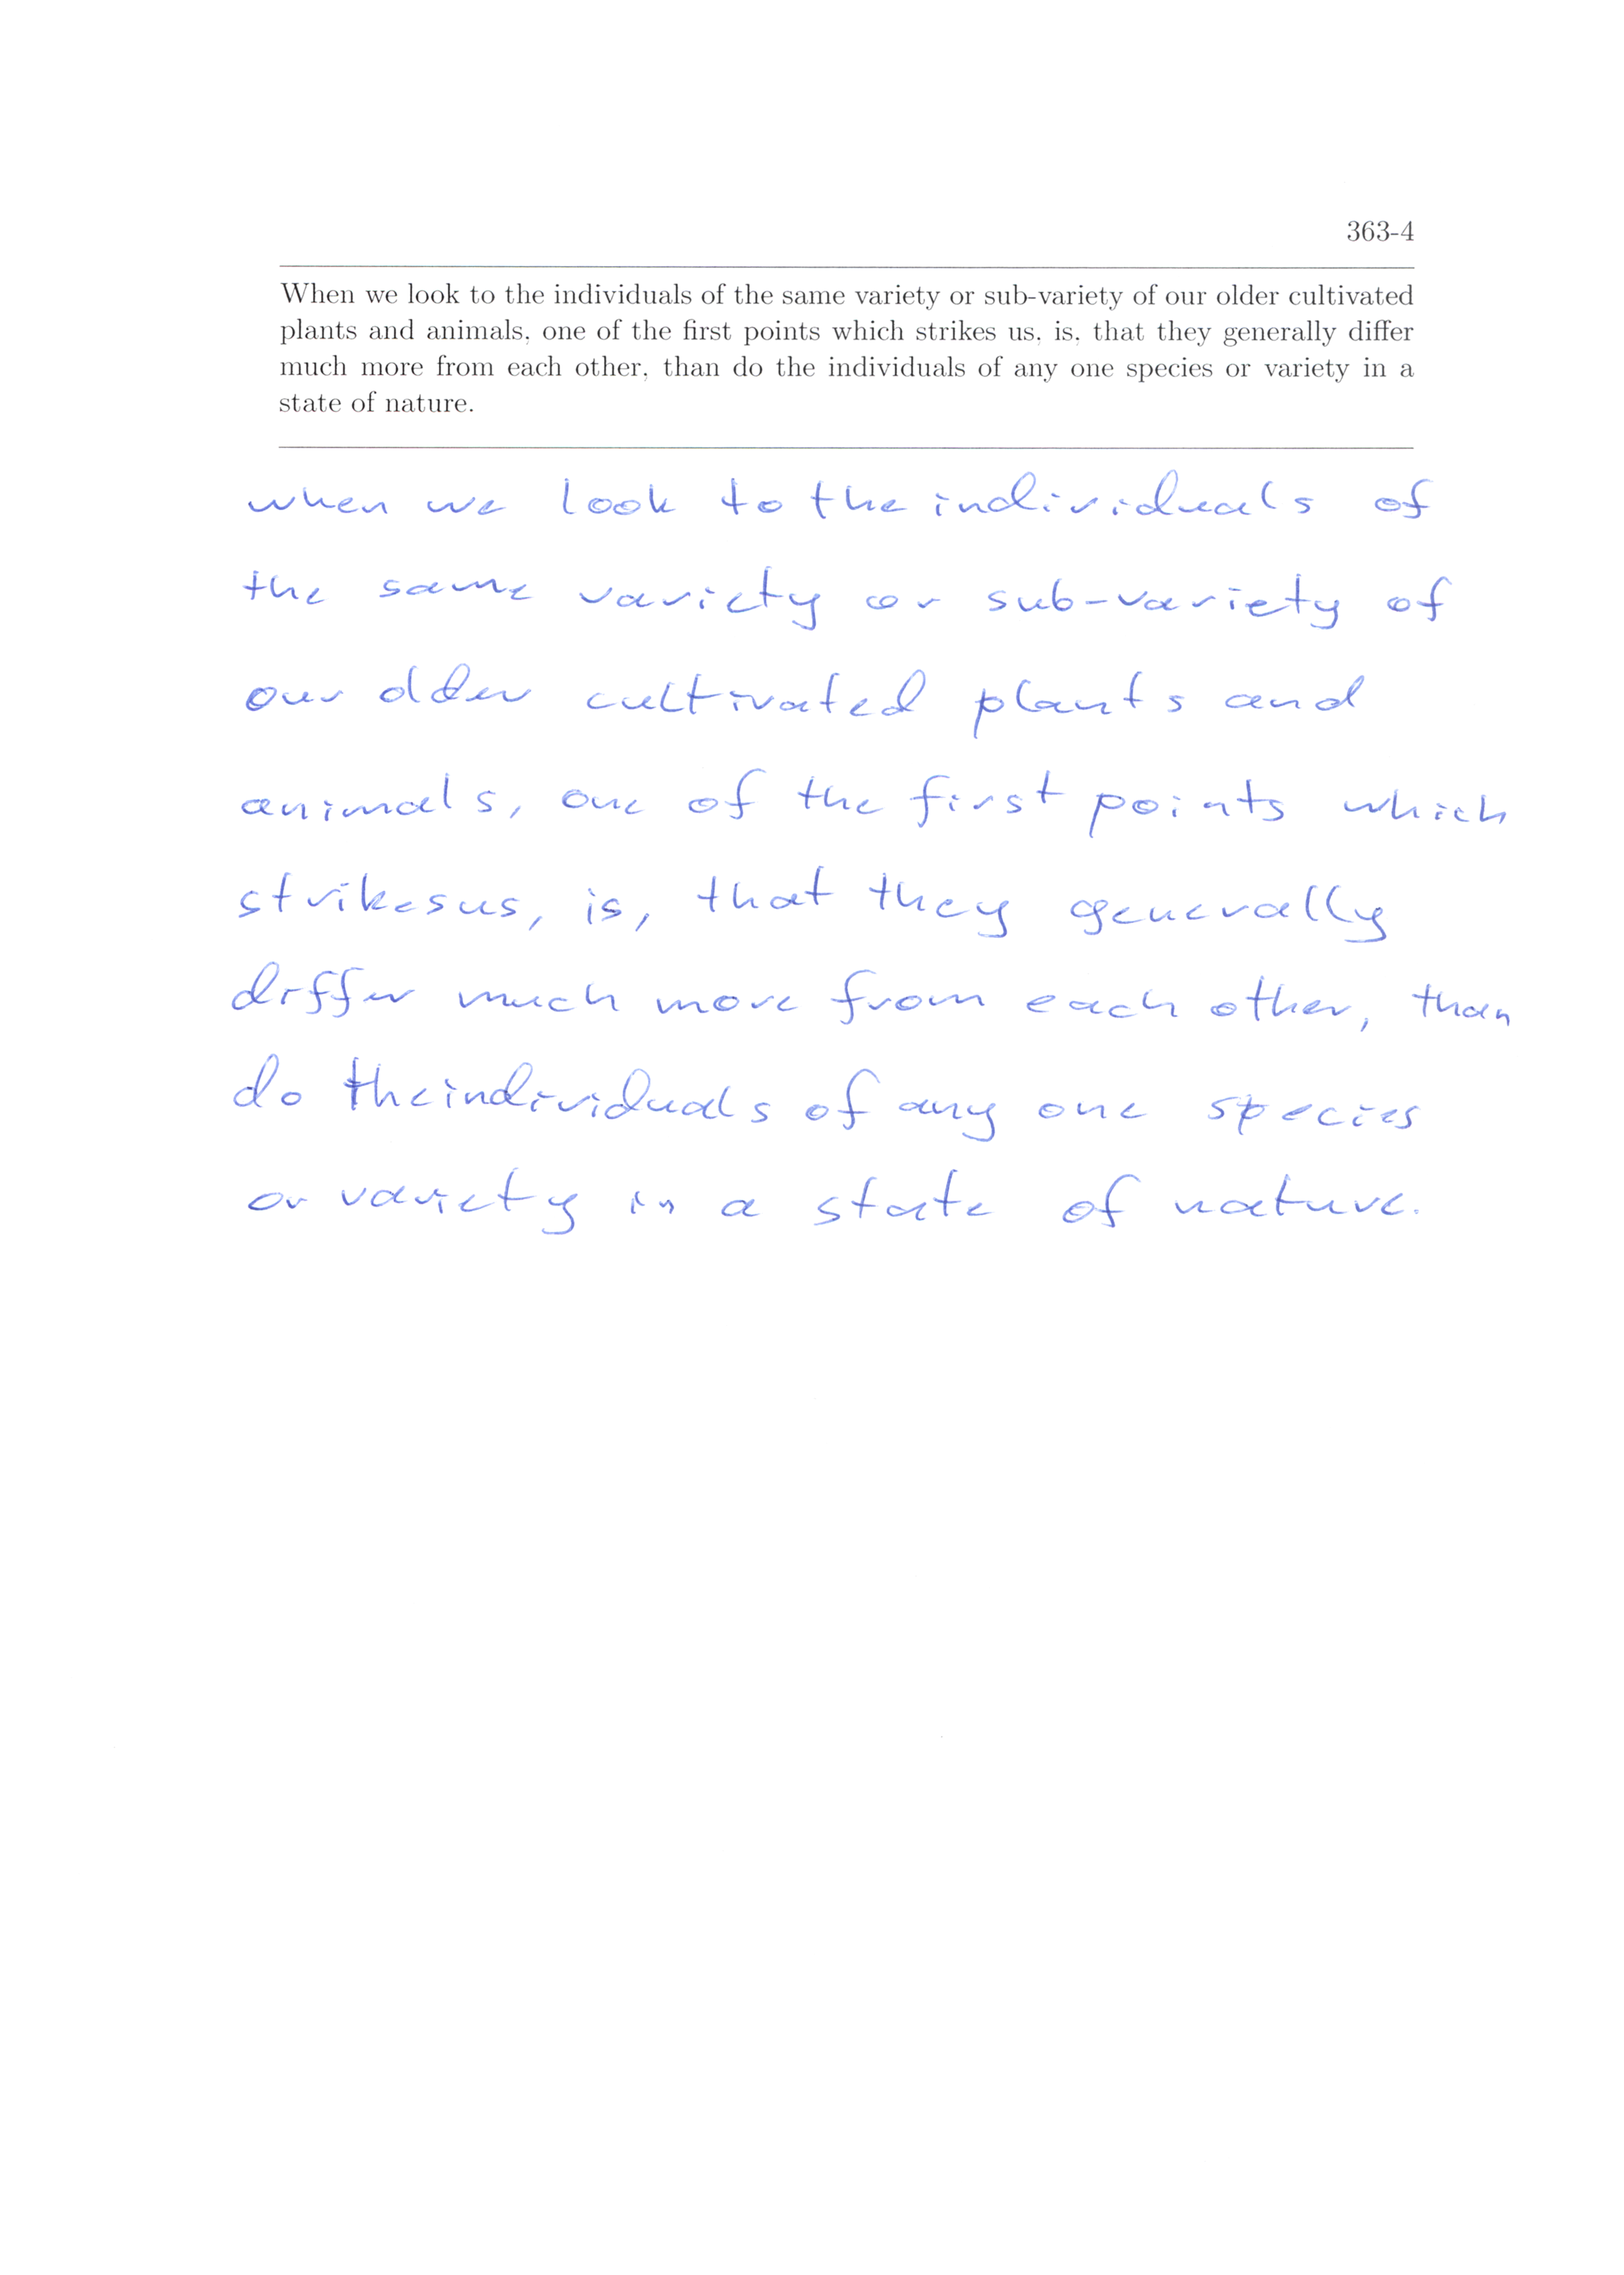 363-4
When we look to the individuals of the same variety or sub-variety of our older cultivated
plants and animals, one of the first points which strikes us, is, that they generally differ
much more from each other, than do the individuals of any one species or variety in a
state of nature.
when we look to the individuals of
the same variety or sub-variety of
our older cultivated plants and
animals, one of the first points which
strikesus, is, that they generally
differ much more from each other, than
do theindividuals of any one species
or variety in a state of nature.